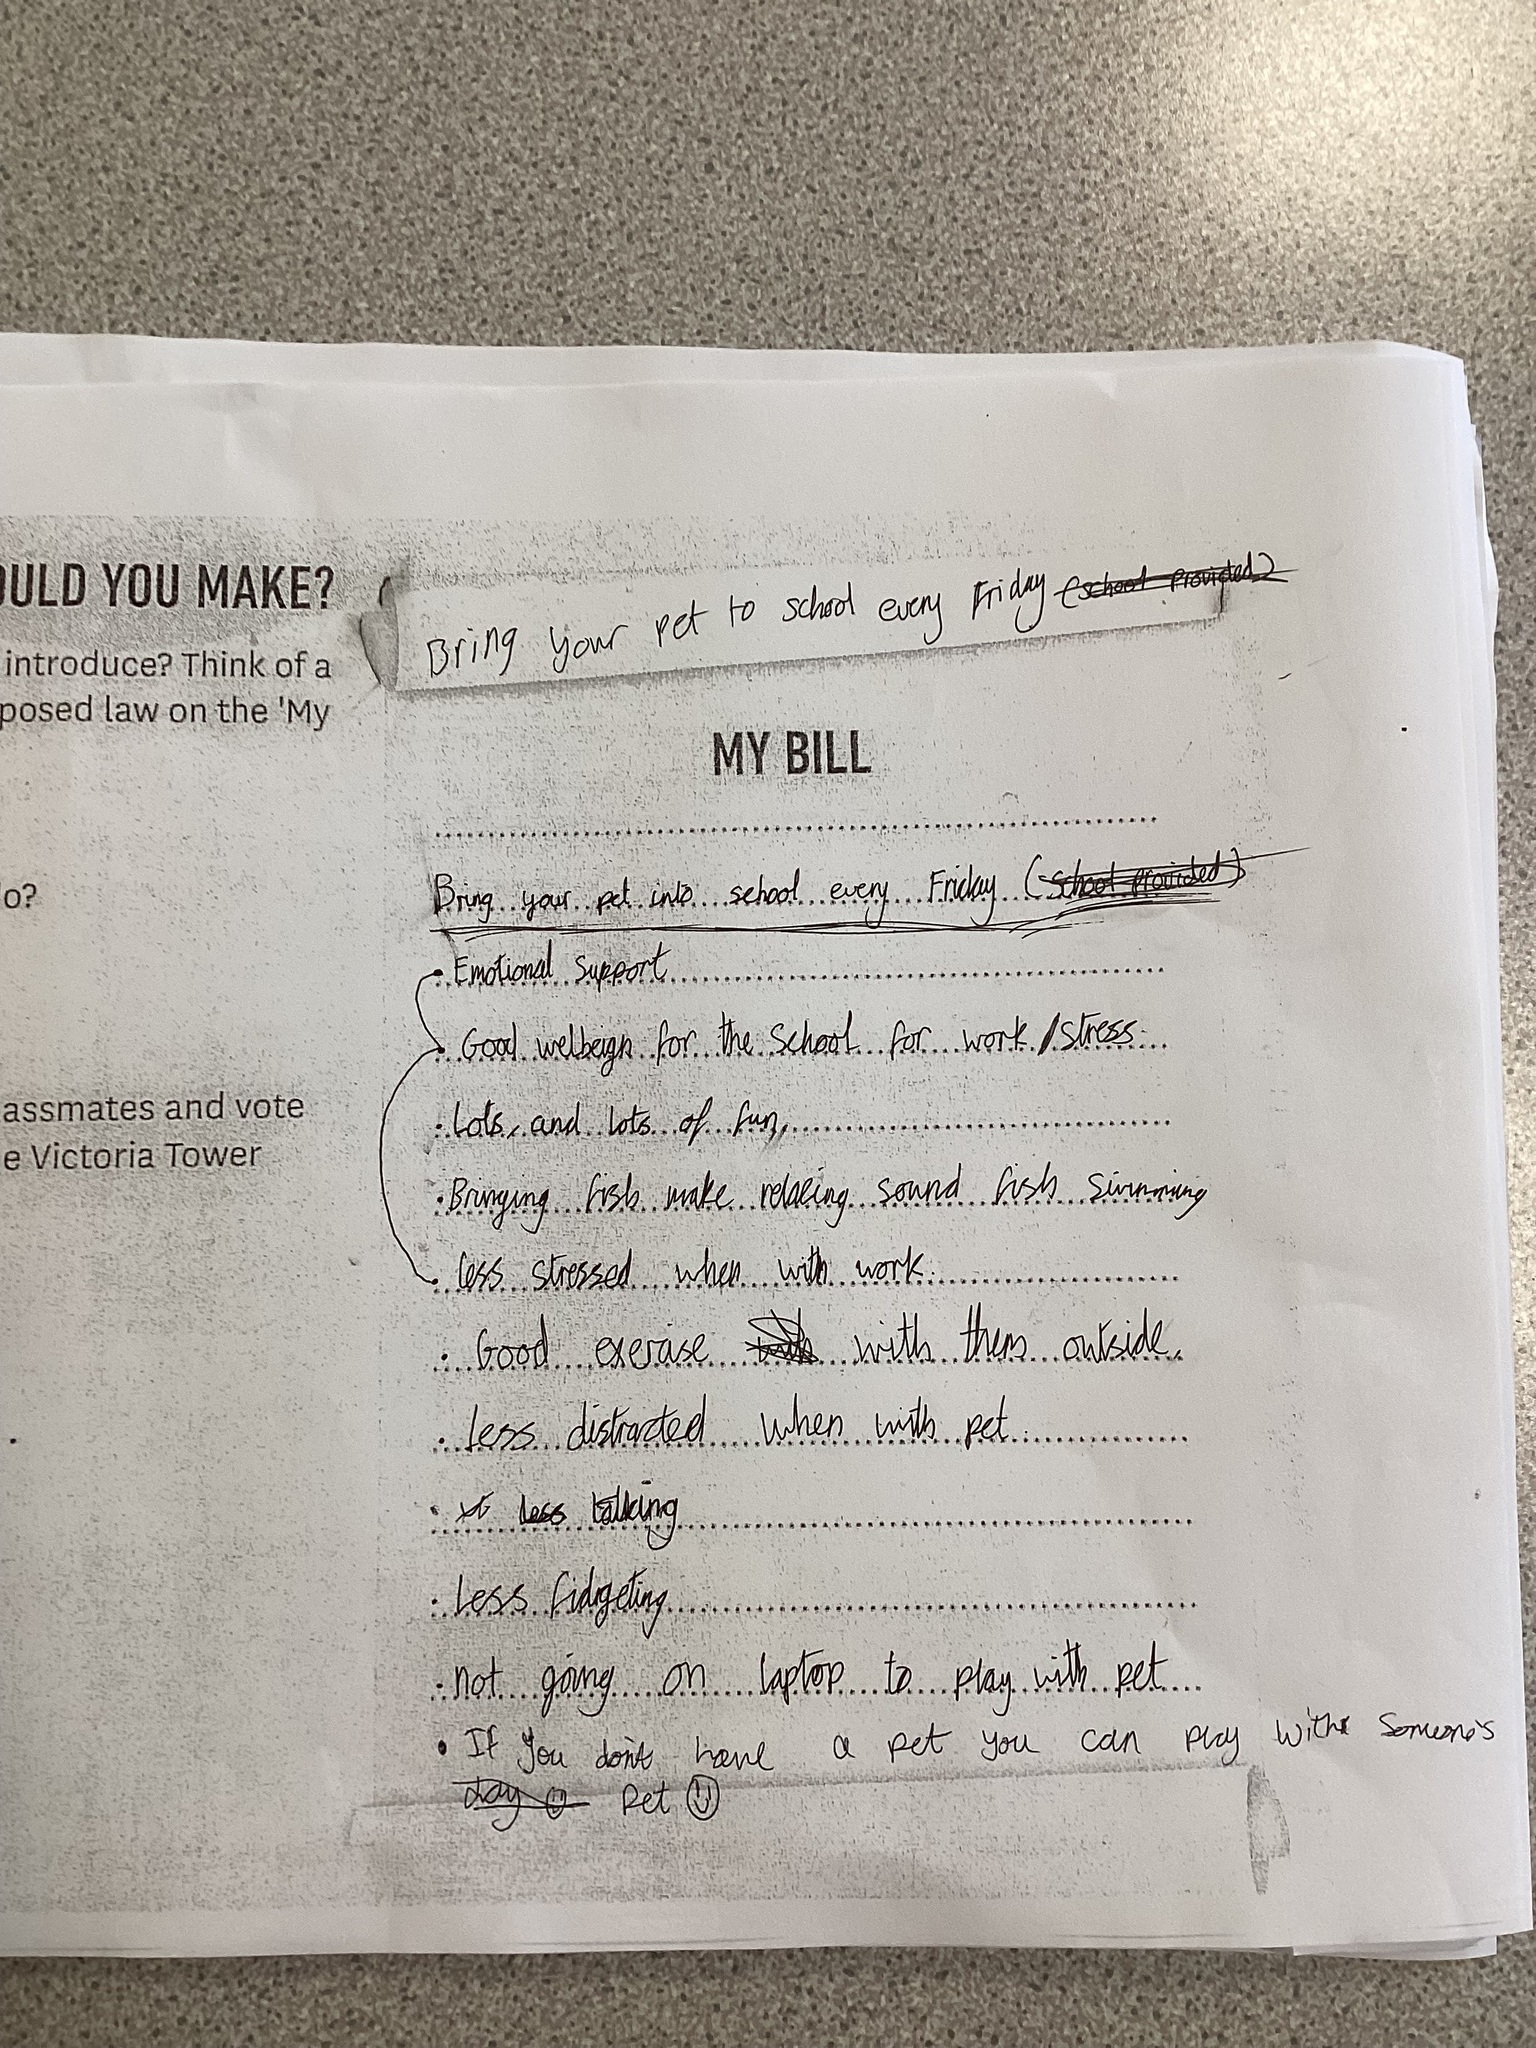 OULD YOU MAKE?
introduce? Think of a
posed law on the 'My
o?
assmates and vote
e Victoria Tower
Bring your pet to school every Friday (school provided)
MY BILL
Bring your pet into school every Friday (school provided)
• Emotional support
• Good welbeign for the school for work/stress.
• Lots, and lots of fun,
• Bringing fish make relaxing sound fish swimming
• less stressed when with work.
• Good exercise with them outside.
• Less distracted when with pet.
• less talking
• Less fidgeting
• not going on laptop to play with pet
• If you don't have a pet you can play with someone's
day pet